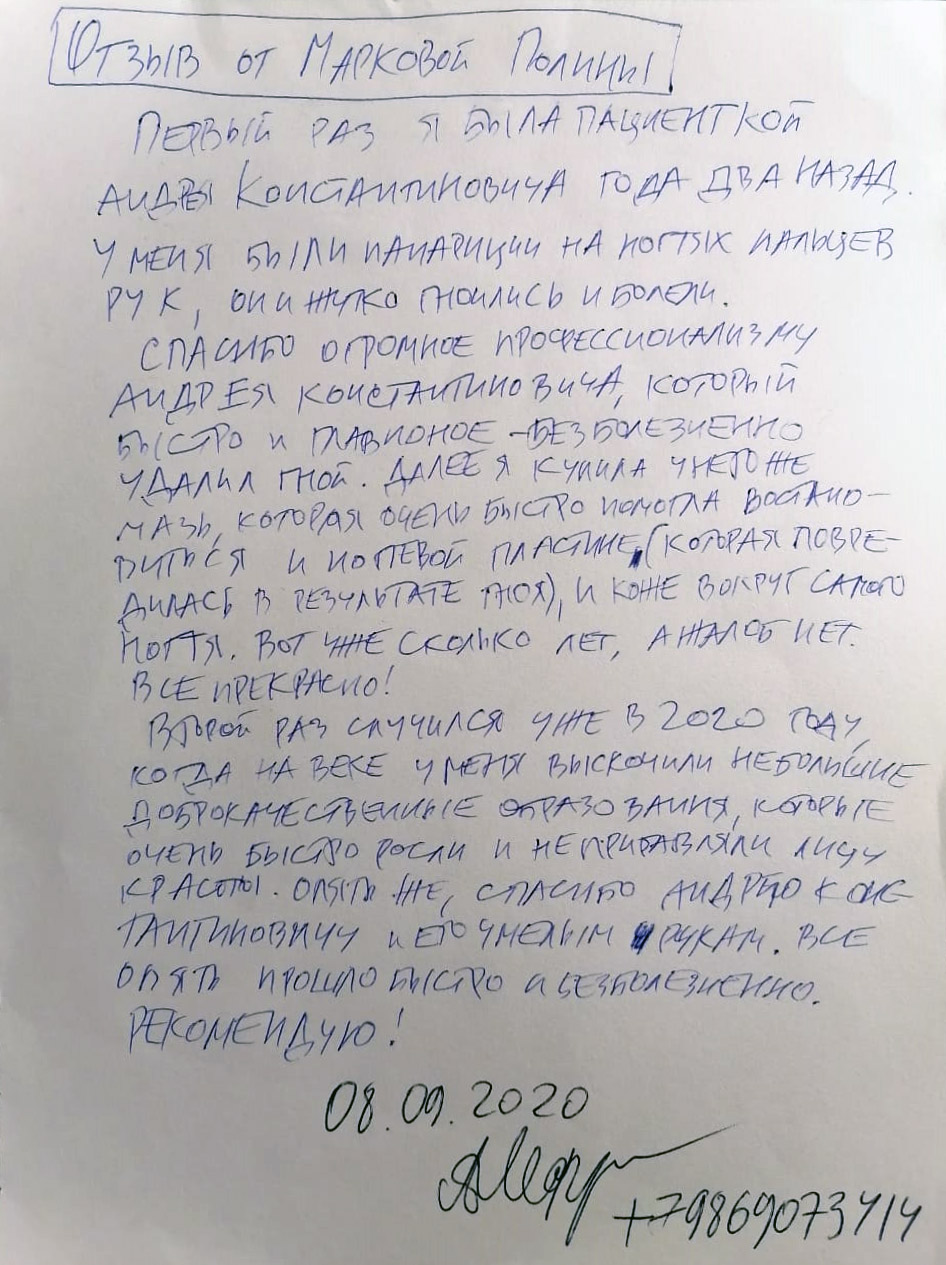 Отзыв от Марковой Полины
Первый раз я была пациенткой
Андрея Константиновича года два назад.
У меня были панариции на ногтях пальцев
рук, они жутко гноились и болели.
Спасибо огромное профессионализму
Андрея Константиновича, который
быстро и главноное – безболезненно
удалил гной. Далее я купила у него же
мазь, которая очень быстро помогла востано-
виться и ногтевой пластине, (которая повре-
дилась в результате гноя), и коже вокруг самого
ногтя. Вот уже сколько лет, а жалоб нет.
Все прекрасно!
Второй раз случился уже в 2020 году,
когда на веке у меня выскочили небольшие
доброкачественные образования, которые
очень быстро росли и не прибавляли лицу
красоты. Опять же, спасибо Андрею Конс-
тантиновичу и его умелым рукам. Все
опять прошло быстро и безболезненно.
Рекомендую!
08.09.2020
+79869073414